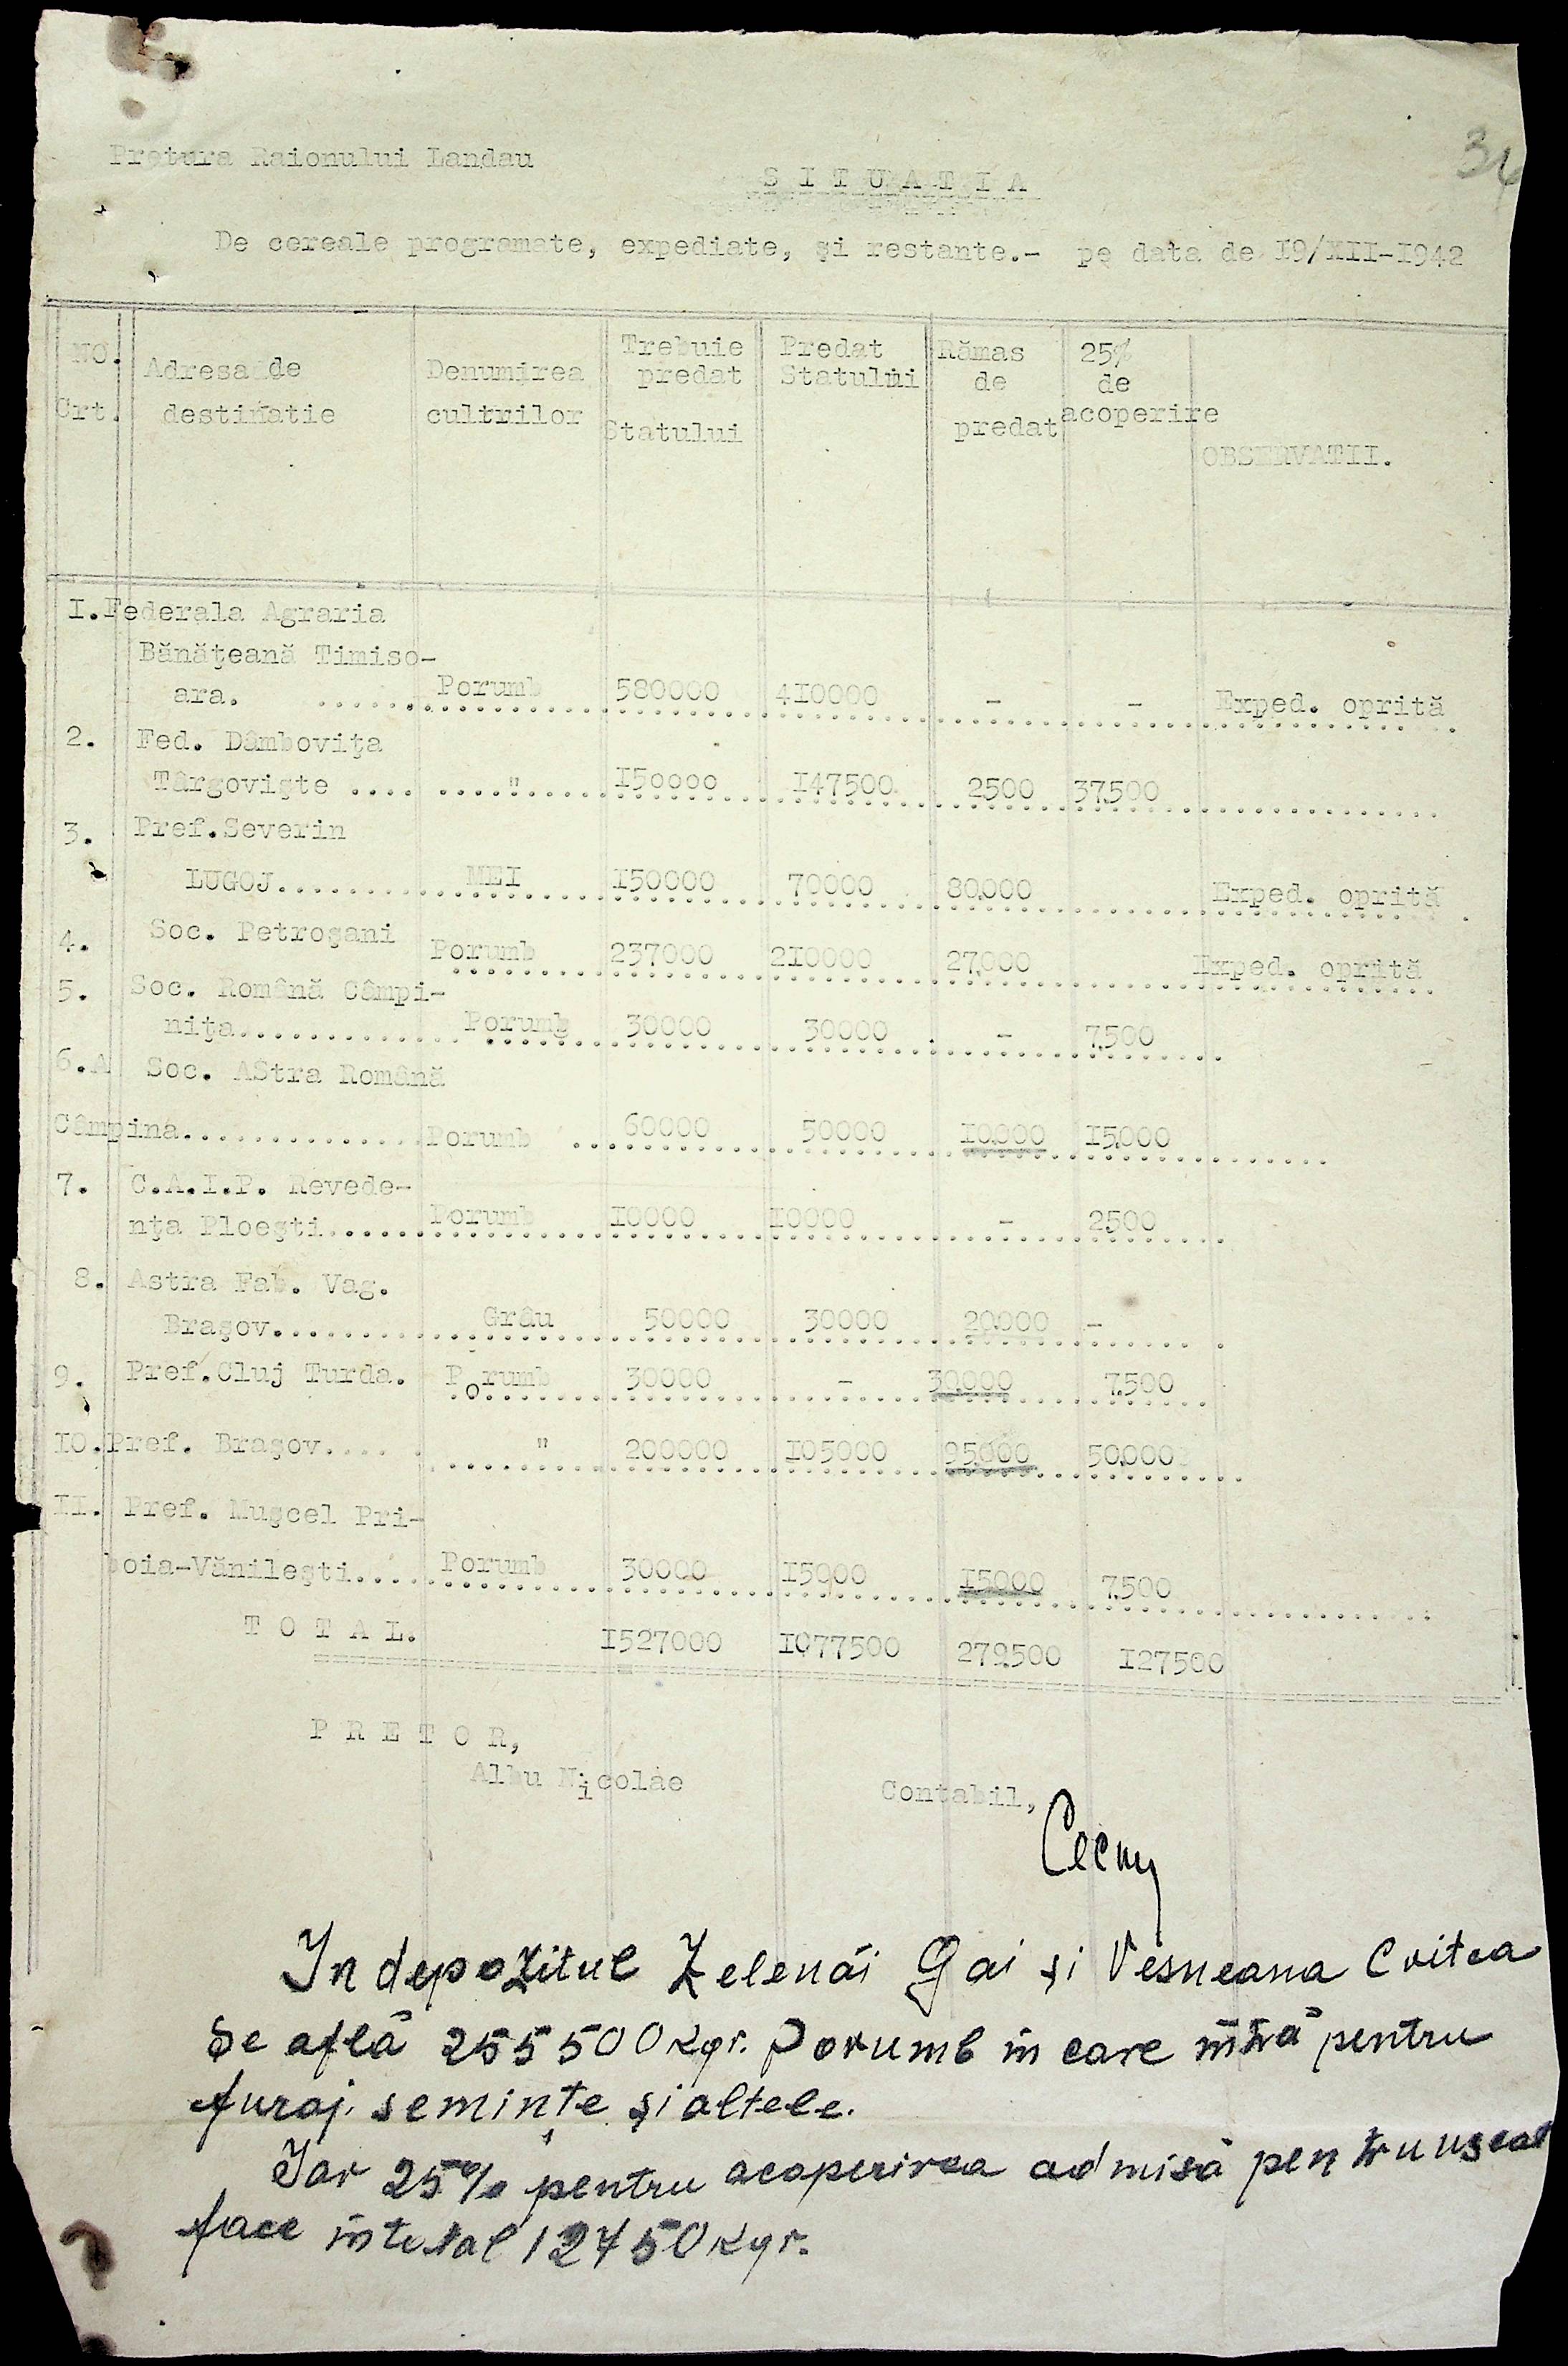 Pretura Raionului Landau
S I T U A T I A
De cereale programate, expediate, şi restante.- pe data de 19/XII-1942
No. Crt. | Adresa de destinatie | Denumirea cultrilor | Trebuie predat Statului | Predat Statului | Rămas de predat | 25% de acoperire | OBSERVATII.
I. Federala Agraria
Bănăţeană Timiso-
ara. ...... Porumb 580000 410000 - - Exped. oprită
2. Fed. Dâmboviţa
Târgovişte .... " 150000 147500 2500 37500
3. Pref.Severin
LUGOJ.......... MEI 150000 70000 80.000 Exped. oprită
4. Soc. Petroşani Porumb 237000 210000 27.000 Exped. oprită
5. Soc. Română Câmpi-
niţa............ Porumb 30000 30000 - 7.500
6.A Soc. AStra Română
Câmpina.............. Porumb 60000 50000 10.000 15.000
7. C.A.I.P. Revede-
nţa Ploeşti..... Porumb 10000 10000 - 2500
8. Astra Fab. Vag.
Braşov.......... Grâu 50000 30000 20.000 -
9. Pref.Cluj Turda. Porumb 30000 - 30.000 7.500
10. Pref. Braşov.... " 200000 105000 95.000 50.000
II. Pref. Muşcel Pri-
boia-Vănileşti.... Porumb 30000 15000 15000 7.500
T O T A L. 1527000 1077500 279.500 127500
P R E T O R,
Albu Nicolae
Contabil,
In depozitul Zelenâi Gai şi Vesneana Cvitca
se află 255500 Kgr. Porumb in care intră pentru
furaj, seminţe şi altele.
Iar 25% pentru acoperirea admisă pentru uscat
face in total 12450 Kgr.